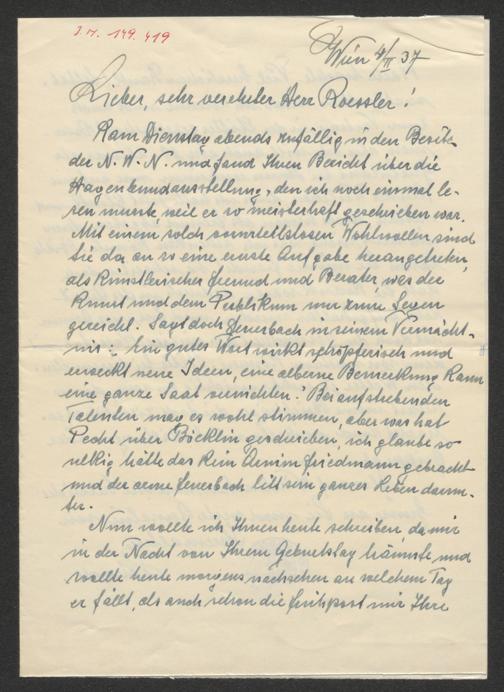 J.N. 149.419
Wien 4/II 37
Lieber, sehr verehrter Herr Roessler!
Kam Dienstag abends zufällig in den Besitz
der N.W.N. und fand Ihren Bericht über die
Hagenbundausstellung, den ich noch einmal le-
sen musste weil er so meisterhaft geschrieben war.
Mit einem solch vorurteilslosen Wohlwollen sind
Sie da an so eine ernste Aufgabe herangetreten,
als Künstlerischer Freund und Berater, was der
Kunst und dem Publikum nur zum Segen
gereicht. Sagt doch Feuerbach in seinem Vermächt-
nis: "Ein gutes Wort wirkt schöpferisch und
erweckt neue Ideen, eine alberne Bemerkung kann
eine ganze Saat vernichten." Bei aufstrebenden
Talenten mag es wohl stimmen, aber was hat
Pecht über Böcklin geschrieben, ich glaube so
hätte das kein Armin Friedmann gebracht
und der arme Feuerbach litt sein ganzes Leben darun-
ter.
Nun wollte ich Ihnen heute schreiben da mir
in der Nacht von Ihrem Geburtstag träumte und
wollte heute morgens nachsehen an welchem Tag
er fällt, als auch schon die Frühpost mir Ihre